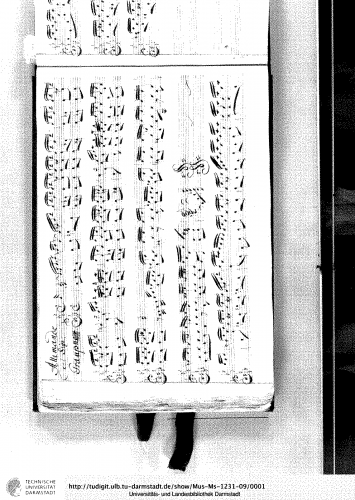 Allemande
Del Sigr
Graupner
TECHNISCHE
UNIVERSITÄT
DARMSTADT
http://tudigit.ulb.tu-darmstadt.de/show/Mus-Ms-1231-09/0001
Universitäts- und Landesbibliothek Darmstadt